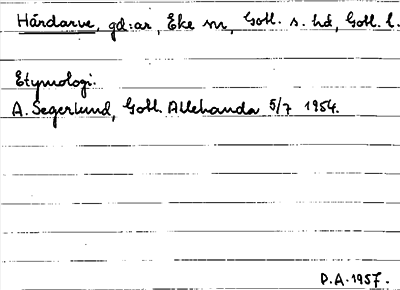 Hårdarve, gd:ar, Eke sn, Gotl. s. hd, Gotl. l.
Etymologi.
A. Segerlund, Gotl. Allehanda 5/7 1954.
P.A. 1957.